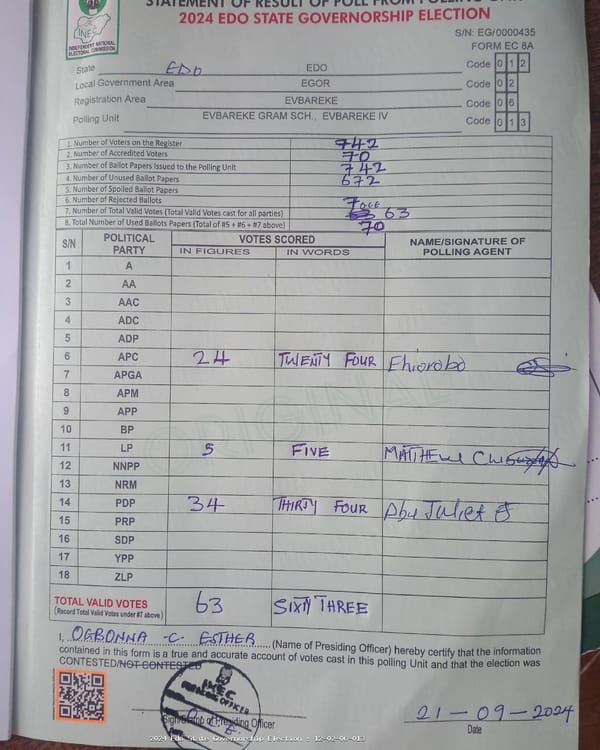 STATEMENT OF RESULT OF POLL FROM POLLING UNIT
2024 EDO STATE GOVERNORSHIP ELECTION
INEC
INDEPENDENT NATIONAL ELECTORAL COMMISSION
S/N: EG/0000435
FORM EC 8A
State EDO EDO Code 0 1 2
Local Government Area EGOR Code 0 2
Registration Area EVBAREKE Code 0 6
Polling Unit EVBAREKE GRAM SCH., EVBAREKE IV Code 0 1 3
1. Number of Voters on the Register 742
2. Number of Accredited Voters 70
3. Number of Ballot Papers Issued to the Polling Unit 742
4. Number of Unused Ballot Papers 672
5. Number of Spoiled Ballot Papers
6. Number of Rejected Ballots 7
7. Number of Total Valid Votes (Total Valid Votes cast for all parties) 63
8. Total Number of Used Ballots Papers (Total of #5 + #6 + #7 above) 70
S/N POLITICAL PARTY VOTES SCORED NAME/SIGNATURE OF POLLING AGENT
IN FIGURES IN WORDS
1 A
2 AA
3 AAC
4 ADC
5 ADP
6 APC 24 TWENTY FOUR Ehiorobo
7 APGA
8 APM
9 APP
10 BP
11 LP 5 FIVE MATTHEW
12 NNPP
13 NRM
14 PDP 34 THIRTY FOUR Abu Juliet
15 PRP
16 SDP
17 YPP
18 ZLP
TOTAL VALID VOTES 63 SIXTY THREE
(Record Total Valid Votes under #7 above)
ORIGINAL
I, OGBONNA C. ESTHER (Name of Presiding Officer) hereby certify that the information
contained in this form is a true and accurate account of votes cast in this polling Unit and that the election was
CONTESTED/NOT CONTESTED
INEC
PRESIDING OFFICER
Sign/Stamp of Presiding Officer
21-09-2024
Date
2024 Edo State Governorship Election : 12-02-06-013